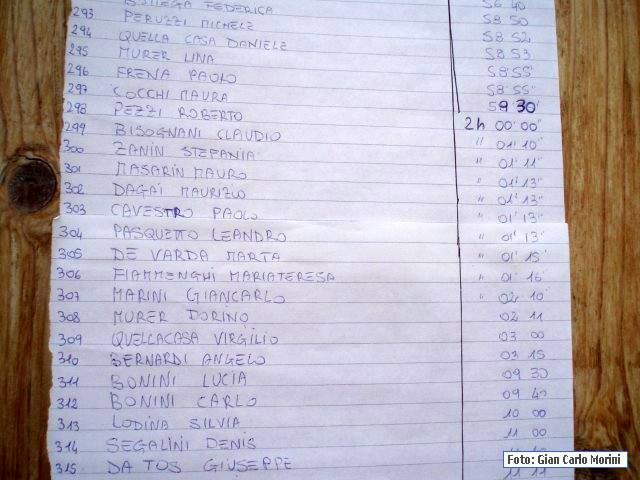 BOTTEGA FEDERICA 58 50
293 PERUZZI MICHELE 58 52
294 QUELLA CASA DANIELE 58 53
295 MURER LINA 58'55"
296 FRENA PAOLO 58'55"
297 COCCHI MAURA 59 30"
298 PEZZI ROBERTO 2h 00'00"
299 BISOGNANI CLAUDIO " 01'10"
300 ZANIN STEFANIA " 01'11"
301 MASARIN MAURO " 01'13"
302 DAGAI MAURIZIO " 01'13"
303 CAVESTRO PAOLO " 01'13"
304 PASQUETTO LEANDRO " 01'13"
305 DE VARDA MARTA " 01'15
306 FIAMMENGHI MARIATERESA " 01'16
307 MARINI GIANCARLO " 02 10
308 MURER DORINO 02 11
309 QUELLACASA VIRGILIO 03 00
310 BERNARDI ANGELO 03 15
311 BONINI LUCIA 09 30
312 BONINI CARLO 09 40
313 LODINA SILVIA 10 00
314 SEGALINI DENIS 11 00
315 DA TOS GIUSEPPE
11 11
Foto: Gian Carlo Morini